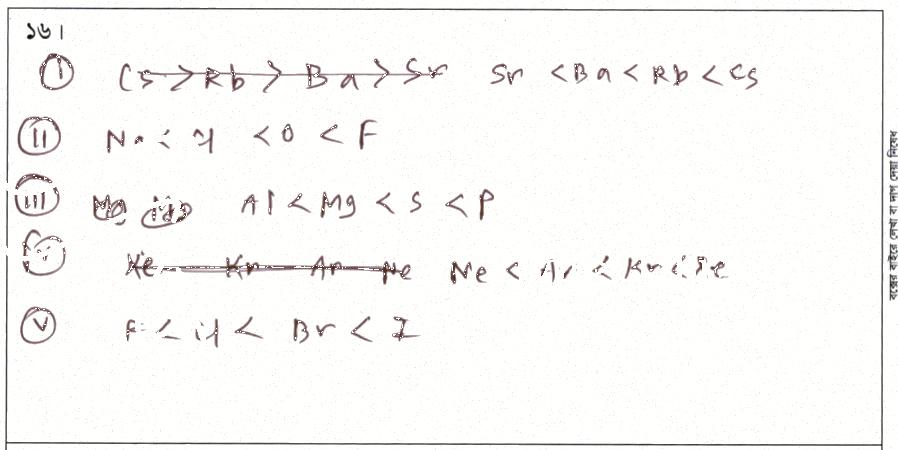 ১৬।
(I) Cs > Rb > Ba > Sr Sr < Ba < Rb < Cs
(II) Na < Cl < O < F
(III) Mg Al < Mg < S < P
(IV) Xe Kr Ar Ne Ne < Ar < Kr < Xe
(V) F < Cl < Br < I
বক্সের বাইরে লেখা বা দাগ দেয়া নিষেধ